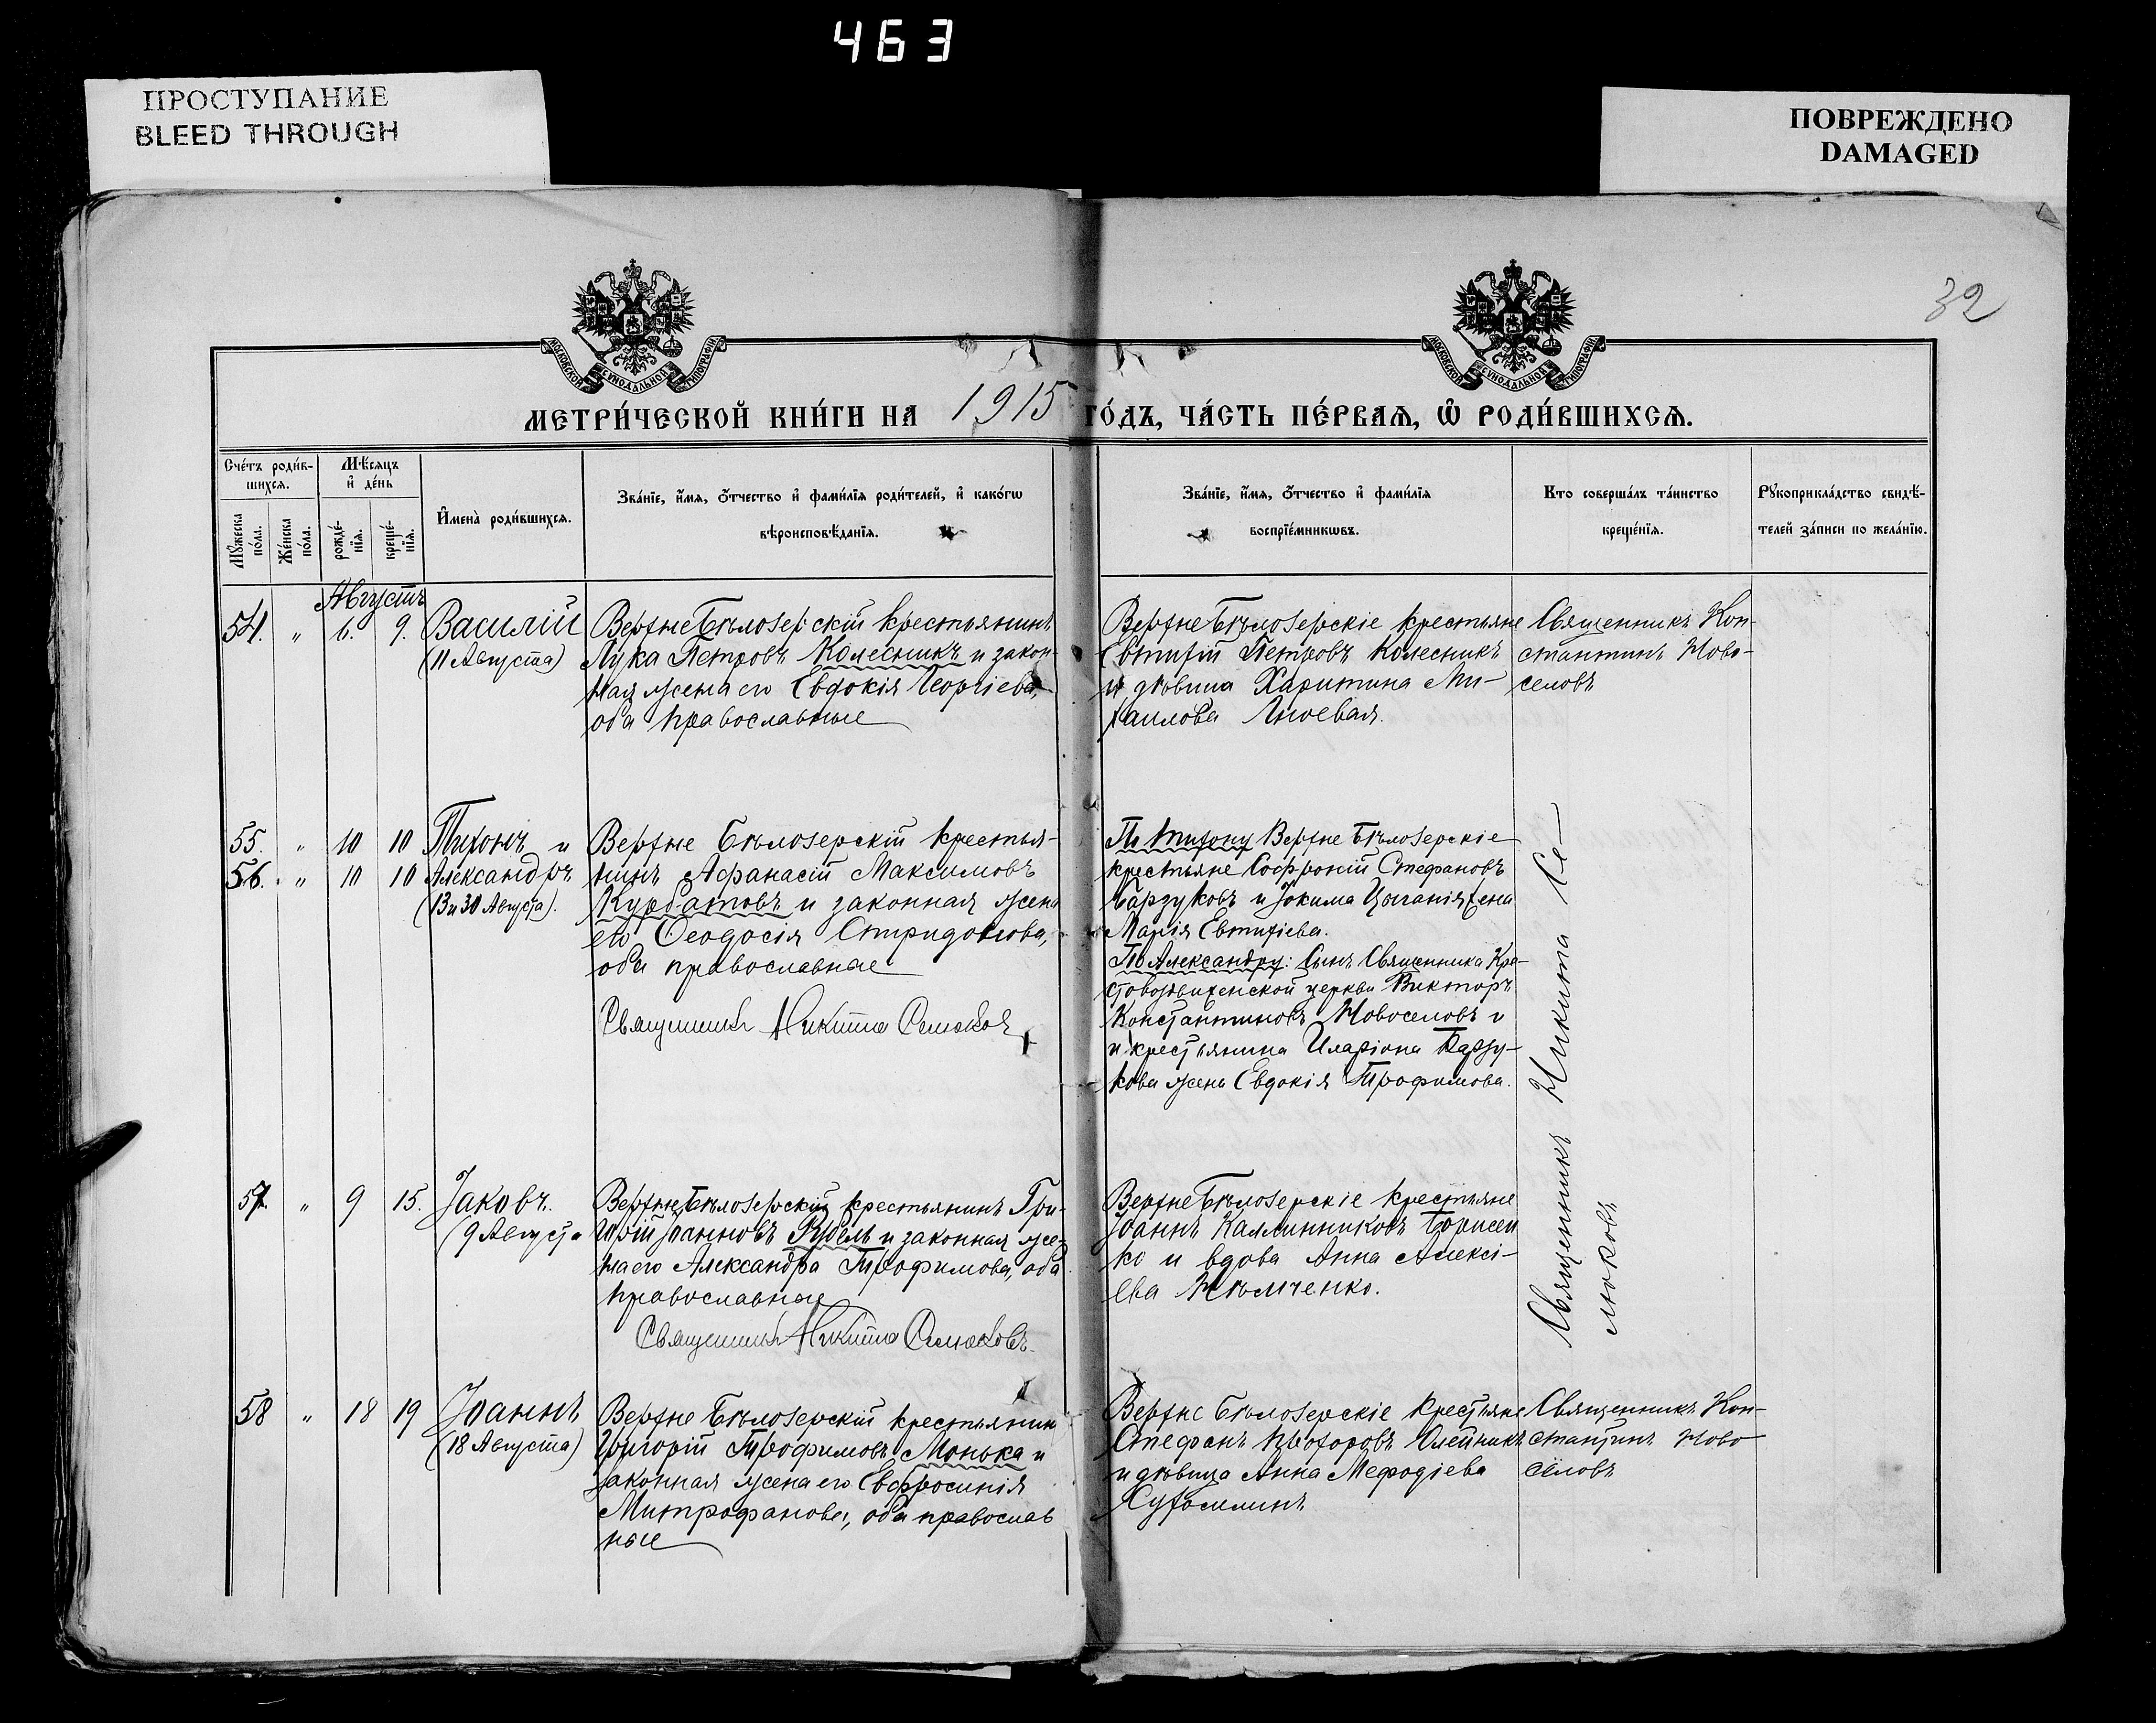 463
ПРОСТУПАНИЕ
BLEED THROUGH
ПОВРЕЖДЕНО
DAMAGED
32
МОСКОВСКОЙ СѴНОДАЛЬНОЙ ТИПОГРАФІИ
МОСКОВСКОЙ СѴНОДАЛЬНОЙ ТИПОГРАФІИ
МЕТРИ́ЧЕСКОЙ КНИ́ГИ НА 1915 ГО́ДЪ, ЧА́СТЬ ПЕ́РВАѦ, Ѡ҆ РОДИ́ВШИХСѦ.
Сче́тъ роди́в-
шихсѧ.
Мѣ́сѧцъ
и҆ де́нь
Мꙋ́жеска
по́ла.
Же́нска
по́ла.
рожде́-
нїѧ.
креще́-
нїѧ.
И҆мена̀ роди́вшихсѧ.
Зва́нїе, и҆́мѧ, ѻ҆́тчество и҆ фами́лїѧ роди́телей, и҆ како́гѡ
вѣроисповѣ́данїѧ.
Зва́нїе, и҆́мѧ, ѻ҆́тчество и҆ фами́лїѧ
воспрїе́мникѡвъ.
Кто соверша́лъ та́инство
креще́нїѧ.
Рꙋкоприкла́дство свидѣ́-
телей за́писи по жела́нїю.
Августъ
54. " 6. 9. Василій
(11 Августа)
Верхне Бѣлозерскій крестьянинъ
Лука Петровъ Колесникъ и закон-
ная жена его Евдокія Георгіева,
оба православные
Верхне Бѣлозерскіе крестьяне
Евтихій Петровъ Колесникъ
и дѣвица Харитина Ми-
хаилова Гноевая.
Священникъ Кон-
стантинъ Ново-
селовъ
55. " 10 10 Тихонъ и
56. " 10 10 Александръ
(13 и 30 Августа).
Верхне Бѣлозерскій крестья-
нинъ Афанасій Максимовъ
Курбатовъ и законная жена
его Ѳеодосія Спиридонова,
оба православные
Священникъ Никита Семоковъ
По Тихону Верхне Бѣлозерскіе
крестьяне Софроній Стефановъ
и Іокима жена
Марія Евтихіева.
По Александру: Сынъ Священника Кре-
стовоздвиженской церкви Викторъ
Константиновъ Новоселовъ и
и крестьянина Иларіона Барзу-
кова жена Евдокія Трофимова.
Священникъ Никита Се-
57. " 9 15. Іаковъ.
(9 Августа
Верхне Бѣлозерскій крестьянинъ Гри-
горій Іоанновъ Рубель и законная же-
на его Александра Трофимова, оба
православные
Священникъ Никита Семоковъ.
Верхне Бѣлозерскіе крестьяне
Іоаннъ Каллинниковъ Борисен
ко и вдова Анна Алексі-
ева Нѣмченко.
58 " 18 19 Іоаннъ
(18 Августа)
Верхне Бѣлозерскій крестьянин
Григорій Трофимовъ Монька и
законная жена его Евфросинія
Митрофанова, оба православ
ные
Верхне Бѣлозерскіе крестьяне
Стефанъ Прохоровъ Олейникъ
и дѣвица Анна Мефодіева
Священникъ Кон-
стантинъ Ново
селовъ